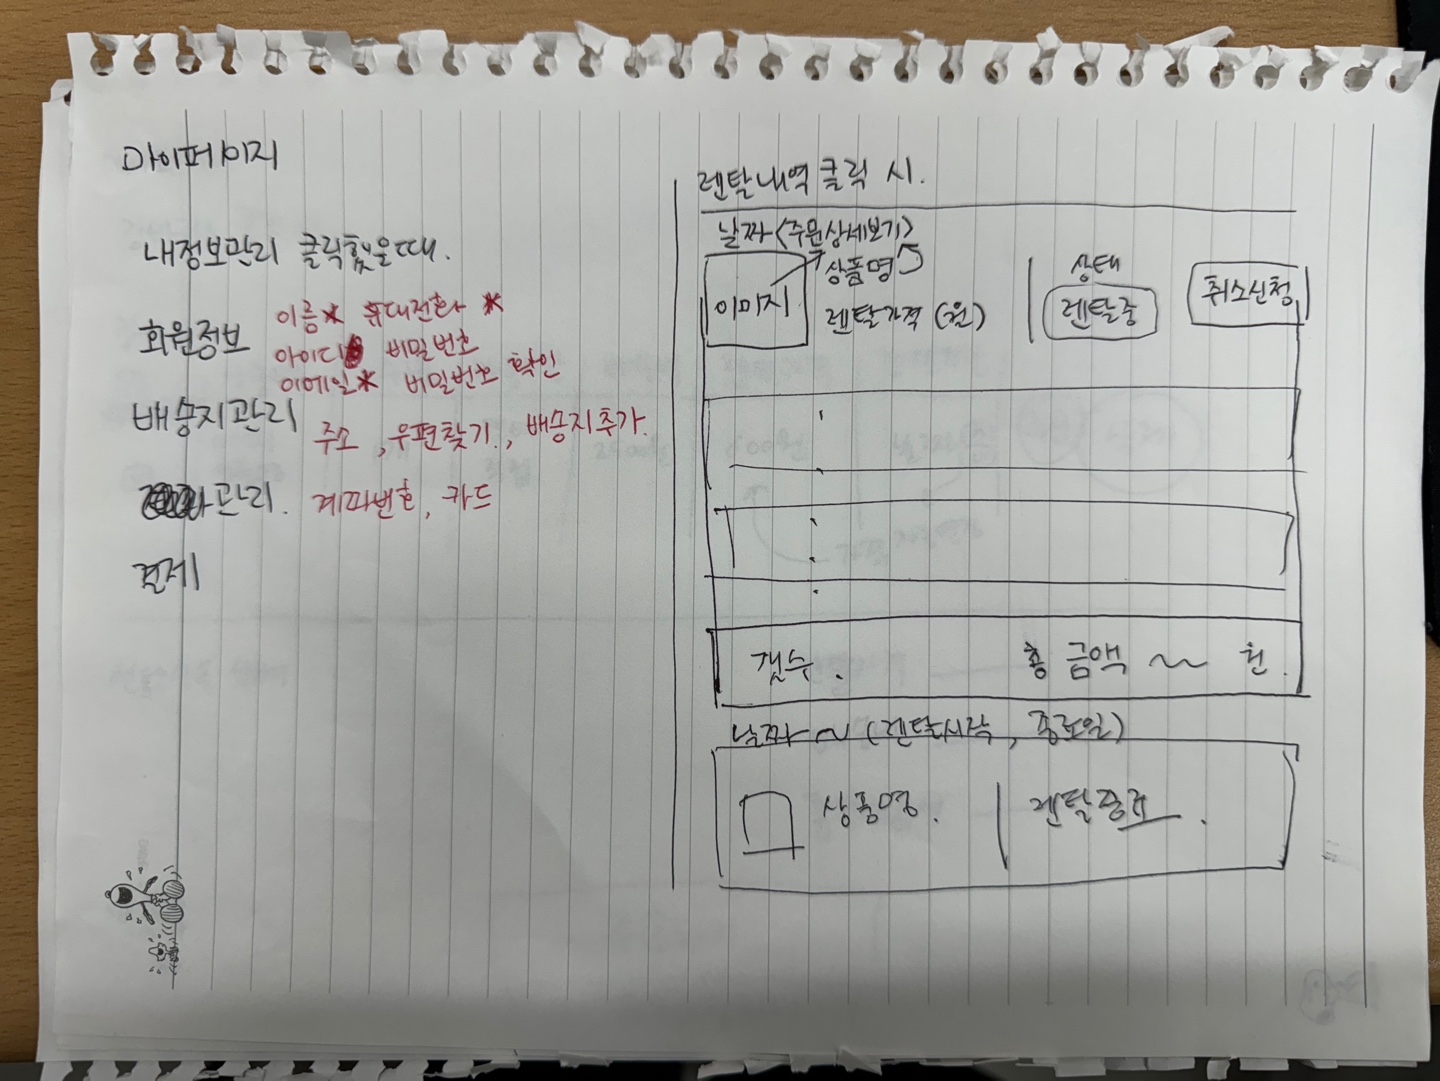 마이페이지
내정보관리 클릭했을때.
회원정보
이름* 휴대전화 *
아이디 비밀번호
이메일* 비밀번호 확인
배송지관리 주소, 우편찾기., 배송지추가.
관리. 계좌번호, 카드
결제
렌탈내역 클릭 시.
날짜 <주문상세보기>
이미지
상품명
렌탈가격 (원)
상태
렌탈중
취소신청
갯수. 총 금액 ~~ 원.
날짜 ~ (렌탈시작, 종료일)
상품명. 렌탈종료.